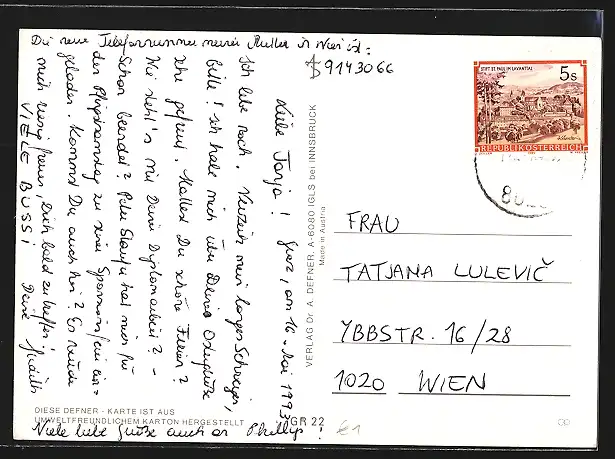 Die neue Telefonnummer meiner Mutter in Wien ist:
9143066
Graz, am 16. Mai 1993
Liebe Tanja!
Ich lebe noch. Verzeih mein langes Schweigen,
bitte! Ich habe mich über Deine Ostergrüße
sehr gefreut. Hattest Du schöne Ferien?
Wie steht's mit Deiner Diplomarbeit? -
Schon beendet? Peter hat mich für
den Pfingstsonntag zu seiner Sponsionsfeier ein-
geladen. Kommst Du auch hin? Es würde
mich riesig freuen, Dich bald zu treffen!
VIELE BUSSI
Deine Judith
Viele liebe Grüße auch an Phillip!
STIFT ST. PAUL IM LAVANTTAL
5s
REPUBLIK ÖSTERREICH
80
VERLAG Dr. A. DEFNER, A-6080 IGLS bei INNSBRUCK
Made in Austria
FRAU
TATJANA LULEVIČ
YBBSTR. 16/28
1020 WIEN
DIESE DEFNER - KARTE IST AUS
UMWELTFREUNDLICHEM KARTON HERGESTELLT
GR 22
€1